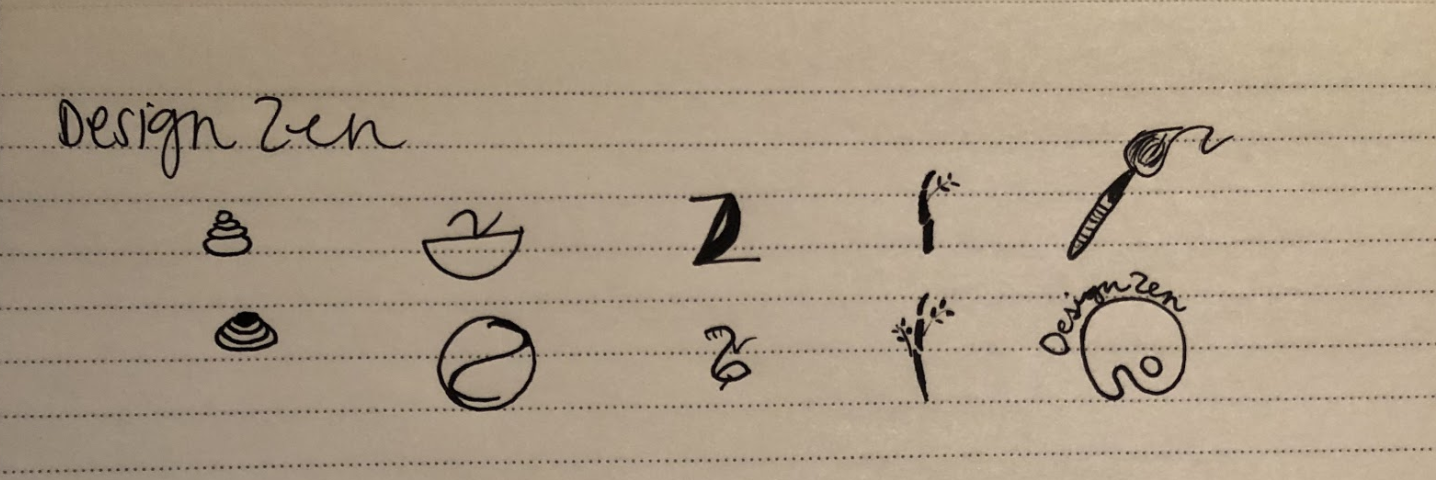 Design Zen
Design Zen